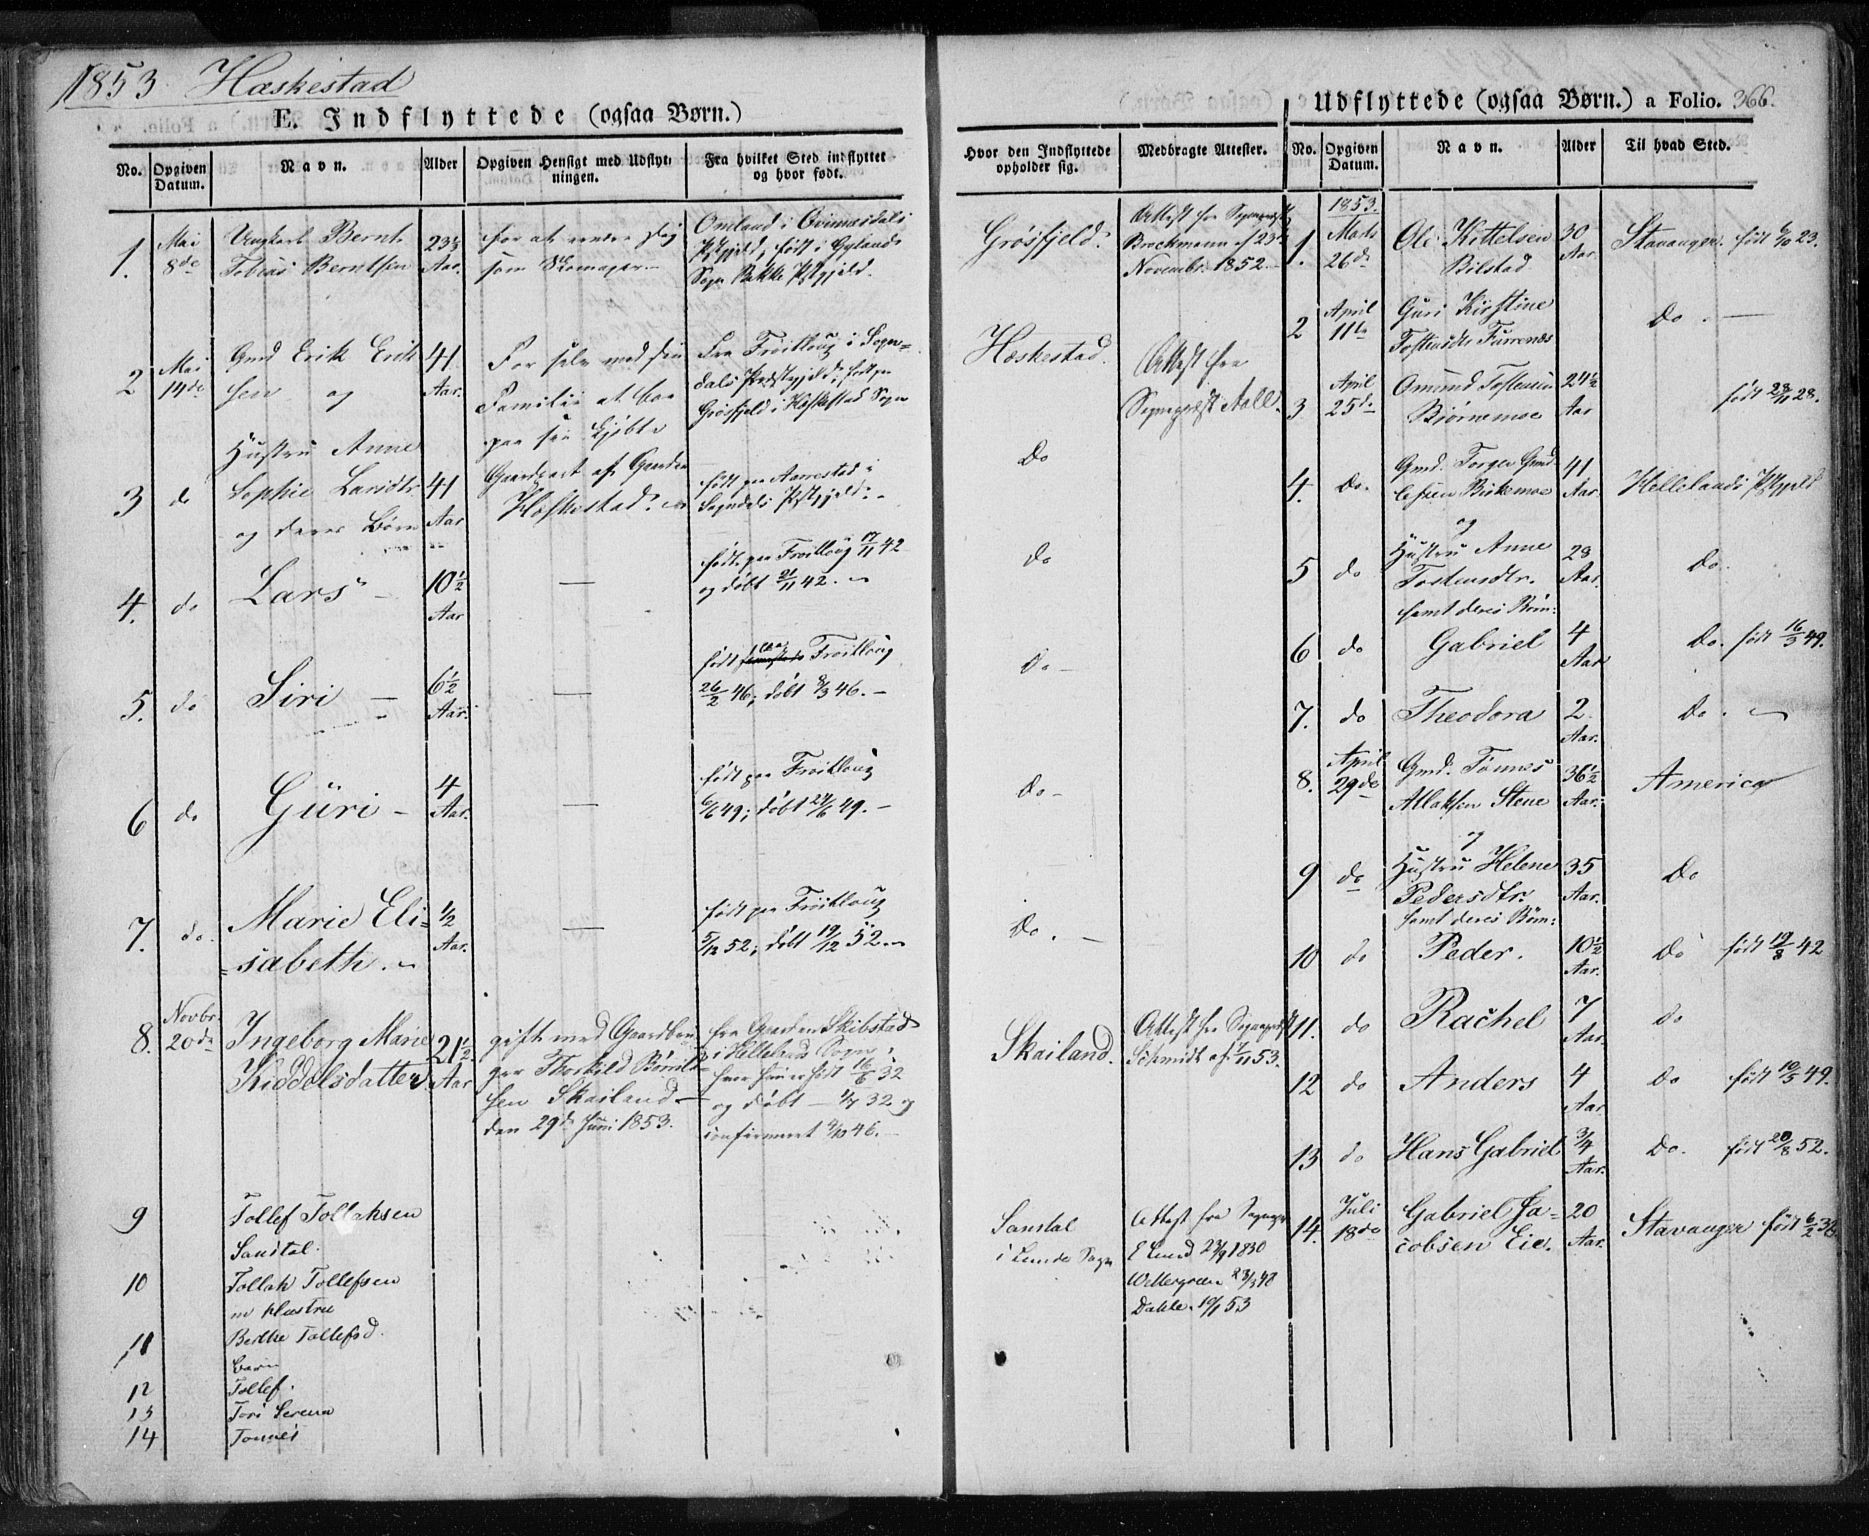 1853. Heskestad
E. Indflyttede (ogsaa Børn.)
No. Opgiven Datum. Navn. Alder Opgiven Hensigt med Udflytningen. Fra hvilket Sted indflyttet og hvor født.
1. Mai 8de
Ungkarl Bernt
Tobias Berntsen
23½ Aar.
for at ernære sig
som Skomager
Omland i Qvinesdals
Pstgjeld, født i Øylands
Sogn Bakke Pstgjeld.
2 Mai 14de
Gmd Erik Erik
sen og
41 Aar.
For selv med sin
Familie at boe
paa sin kjøbte
Gaardpart af Gaarden
Heskestad.
Fra Frøitloug i Sogn=
dals Præstegjeld, født paa
Grøsfjeld i Heskestad Sogn
3 do
Hustru Anne
Sophie Larsdtr
og deres Børn
41 Aar
født paa Aarrestad i
Sogndals Pstgjeld.
4. do Lars - 10½ Aar —
født paa Frøitloug 17/11 42
og døbt 21/11 42.
5. do Siri — 6½ Aar. —
født paa Frøitloug
26/2 46; døbt 8/3 46. -
6 do Güri - 4 Aar. —
født paa Frøitloug
6/6 49; døbt 24/6 49. -
7. do. Marie Eli=
=sabeth.
½ Aar. —
født paa Frøitloug
5/12 52; døbt 19/12 52.
8. Novbr. 20de
Ingeborg Marie
Kiddelsdatter
21½ Aar
gift med Gaardbru
ger Thorkild
sen Skailand
den 29de Juni 1853.
fra Gaarden Skibstad
i Hellelands Sogn,
hvor hun er født 16/6 32
og døbt 1/7 32 og
confirmeret 4/10 46.
9 Tollef Tollaksen
Sandtal.
10 Tollak Tollefsen
m Hustru
11 Berthe Tollefsd.
børn
12 Tollef.
13 Tori Serena
14 Tonnes
Udflyttede (ogsaa Børn.) a Folio. 366.
Hvor den Indflyttede opholder sig. Medbragte Attester. No. Opgiven Datum. Navn. Alder Til hvad Sted.
Grøsfjeld.
Attest fra Sognepræst
Brockmann af 23de
Novembr. 1852.
Heskestad.
Attest fra
Sognepræst Aall.
Do
Do
Do -
Do -
Do. -
Skailand.
Attest fra Sognepræst
Schmidt af 7/11 53.
Sandtal
i Lunde Sogn
Attest fra Sognepr
E Lund 27/9 1830
Wettergreen 23/3 48
Dahle. 19/1 53
1853.
1. Marts 26de
Ole Kittelsen
Bilstad
30 Aar
Stavanger. født 6/10 23.
2 April 11te
Guri Kirstine
Tostensdtr Furrenes
Do. —
3 April 25de
Omund Tostensen
Bjørnemoe
24½ Aar
født 28/11 28.
4. Do.
Gmd. Torger Gmd
lefsen Birkemoe
og
41 Aar.
Hellelands Pstgjeld
5 do
Hustru Anne
Tostensdtr.
samt deres Børn:
28 Aar.
Do.
6 do Gabriel 4 Aar Do. født 16/3 49.
7. do Theodora 2 Aar. Do.
8. April 29de
Gmd. Tønnes
Atlaksen Stene
og
36½ Aar.
America
9 do
Hustru Helene
Pedersdtr.
samt deres Børn:
35 Aar.
Do
10 do Peder. 10½ Aar. Do født 19/8 42
11. do Rachel 7 Aar. do
12 do Anders 4 Aar Do født 10/5 49.
13 do Hans Gabriel ¾ Aar. Do. født 20/8 52.
14. Juli 18de
Gabriel Ja=
cobsen Eie.
20 Aar.
Stavanger født 6/2 32